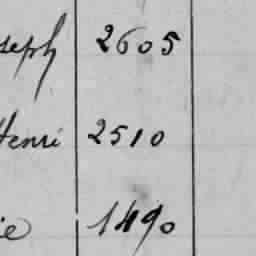 seph 2605
Henri 2510
ie 1490